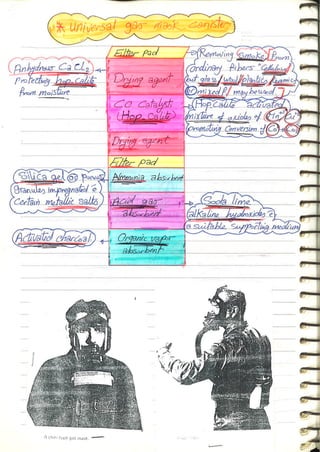 * Universal gas mask canister
Filter pad
Drying agent
CO Catalyst
(Hop calite)
Drying agent
Filter pad
Ammonia absorbent
Acid gas
absorbent
Organic vapor
absorbent
Anhydrous CaCl2
Protecting Hop calite
from moisture
Silica gel or Pumice
Granules impregnated
Certain metallic salts
Activated charcoal
Removing smoke from
ordinary Fibers "Cellulosic
but glass / wool / plastics / ceramic
Or mixed / may be used
Hop calite activated
mixture of oxides of Mn Cu
promoting Conversion of CO → CO2
Soda lime
alkaline hydroxides
a suitable supporting medium
A chin type gas mask